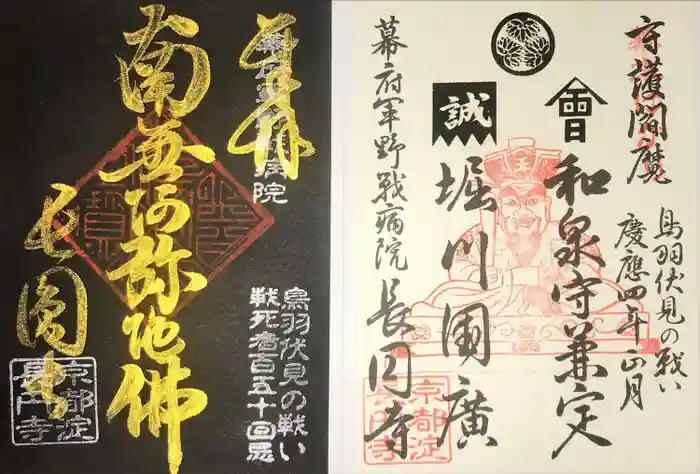 奉拝
病院
南無阿弥陀佛
長圓寺
鳥羽伏見の戦い
戦死者百五十回忌
京都淀
長円寺
守護閻魔
鳥羽伏見の戦い
慶應四年正月
會
和泉守兼定
誠
堀川國廣
王
幕府軍野戦病院
長円寺
京都淀
長円寺